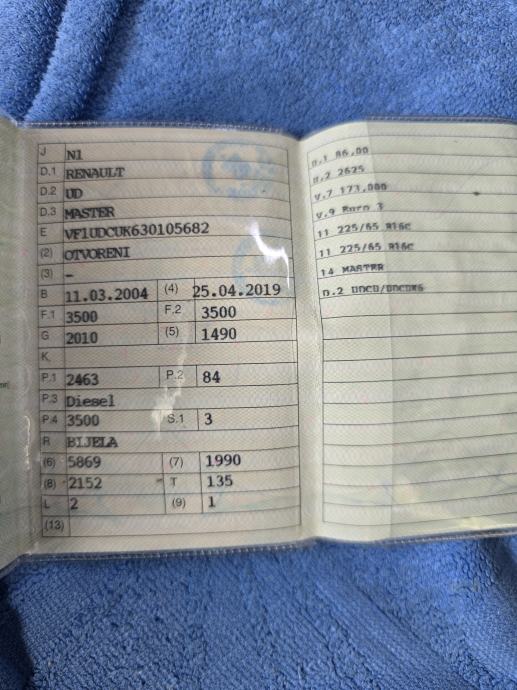 J N1
D.1 RENAULT
D.2 UD
D.3 MASTER
E VF1UDCUK630105682
(2) OTVORENI
(3) -
B 11.03.2004 (4) 25.04.2019
F.1 3500 F.2 3500
G 2010 (5) 1490
K
P.1 2463 P.2 84
P.3 Diesel
P.4 3500 S.1 3
R BIJELA
(6) 5869 (7) 1990
(8) 2152 T 135
L 2 (9) 1
(13)
U.1 86,00
U.2 2625
V.7 173,000
V.9 Euro 3
11 225/65 R16C
11 225/65 R16C
14 MASTER
D.2 UDCU/UDCUK6